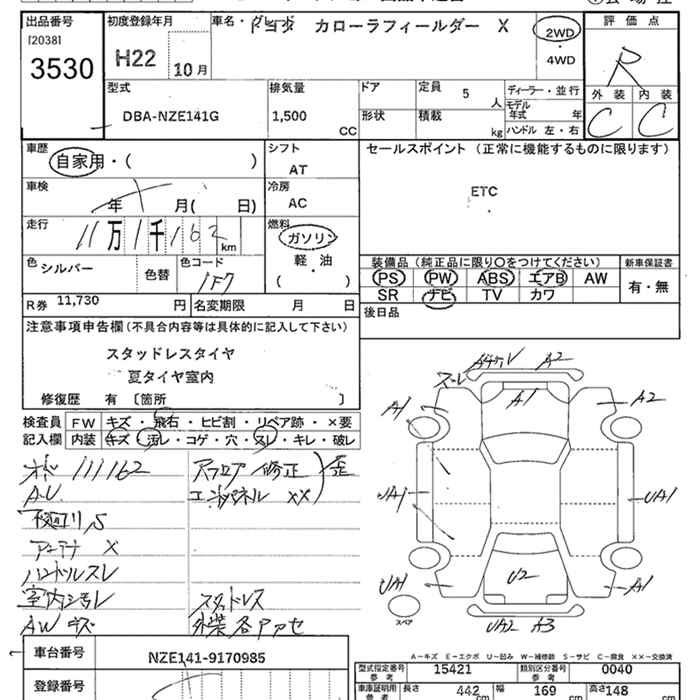 出品番号
[2038]
3530
初度登録年月
H22
10月
車名・グレード
トヨタ カローラフィールダー X
2WD
・
4WD
評価点
R
外装 内装
C C
型式
DBA-NZE141G
排気量
1,500
CC
ドア
形状
定員 5 人
積載 kg
ディーラー・並行
モデル年式 年
ハンドル 左・右
車歴
自家用・( )
シフト
AT
セールスポイント (正常に機能するものに限ります)
ETC
車検
年 月( 日)
冷房
AC
走行
11万1千162km
燃料
ガソリン
軽・油
・
( )
色
シルバー
色替
色コード
1F7
装備品 (純正品に限り〇をつけてください)
新車保証書
PS PW ABS エアB AW
SR ナビ TV カワ
有・無
R券 11,730 円
名変期限 月 日
後日品
注意事項申告欄 (不具合内容等は具体的に記入して下さい)
スタッドレスタイヤ
夏タイヤ室内
修復歴 有 〔箇所 〕
検査員
記入欄
FW キズ・飛石・ヒビ割・リペア跡・×要
内装 キズ・汚レ・コゲ・穴・スレ・キレ・破レ
111162
A.U.
アンテナ X
ハンドルスレ
室内汚レ
AW キズ
修正
XX
歪
スタッドレス
外装各アアセ
A2
A1
A1
A2
UA1
UA1
U2
UA1
A1
スペア
UA2 A3
A-キズ E-エクボ U-凹み W-補修跡 S-サビ C-腐食 XX-交換済
車台番号
NZE141-9170985
登録番号
型式指定番号 参考
15421
類別区分番号 参考
0040
車庫証明用 参考
長さ 442 cm
幅 169 cm
高さ 148 cm